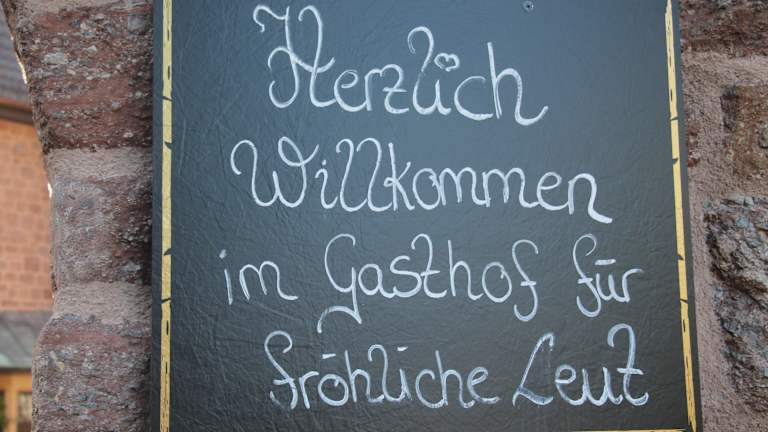 Herzlich
Willkommen
im Gasthof für
fröhliche Leut